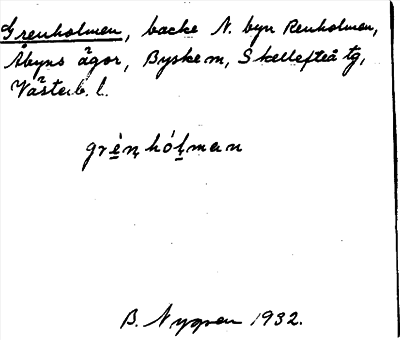 Grenholmen, backe N. byn Renholmen,
Åbyns ägor, Byske sn, Skellefteå tg,
Västerb. l.
grèn̥hól̥man
B. Nygren 1932.